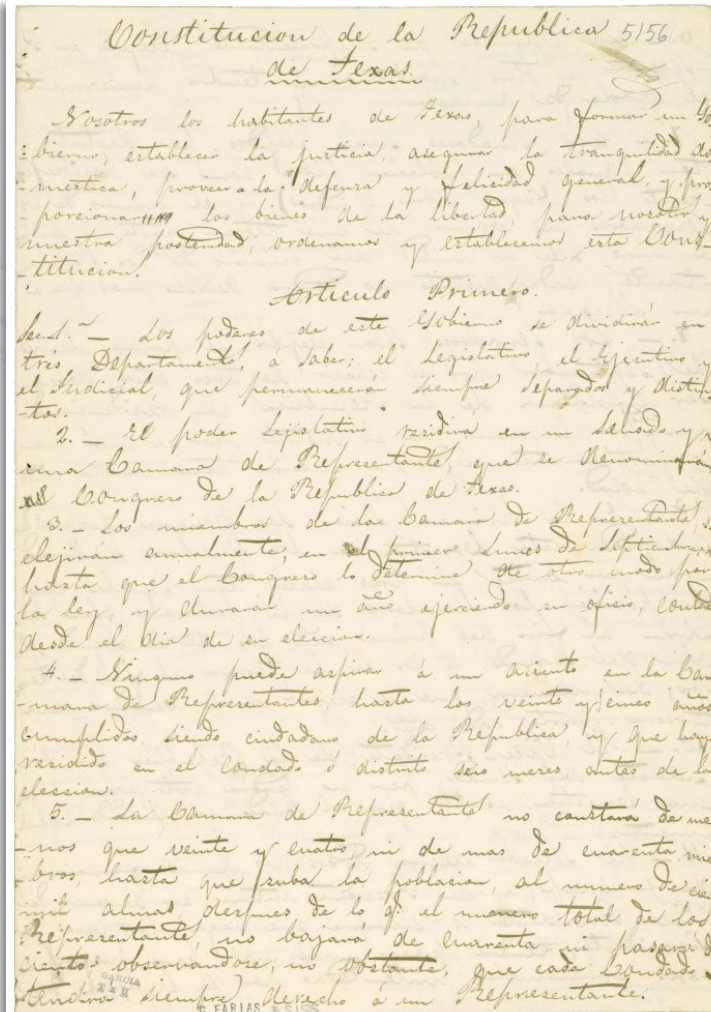 Constitucion de la Republica 5156
de Texas.
Nosotros los habitantes de Texas, para formar un Go
-bierno, establecer la justicia, asegurar la tranquilidad do
-mestica, proveer a la defensa y felicidad general, y pro
-porcionar los bienes de la libertad, para nosotros y
nuestra posteridad, ordenamos y establecemos esta Cons-
-titucion.
Articulo Primero.
Sec. 1.ª — Los poderes de este Gobierno se dividirán en
tres Departamentos, a saber; el Legislativo, el Ejecutivo y
el Judicial, que permanecerán siempre separados y distin
-tos.
2. — El poder Legislativo residira en un Senado y
una Camara de Representantes, que se denominarán
Congreso de la Republica de Texas.
3. — Los miembros de la Camara de Representantes, s
elejiran anualmente, en el primer Lunes de Septiembre,
hasta que el Congreso lo determine de otro modo por
la ley, y durarán un año ejerciendo su oficio, contado
desde el dia de su eleccion.
4. — Ninguno puede aspirar á un asiento en la Ca
-mara de Representantes, hasta los veinte y cinco años
cumplidos, siendo ciudadano de la Republica, y que haya
residido en el condado ó distrito seis meses antes de la
eleccion.
5. — La Camara de Representantes no constará de me
-nos que veinte y cuatro, ni de mas de cuarenta mie
-bros, hasta que suba la poblacion, al numero de cie
mil almas, despues de lo q.e el numero total de los
Representantes, no bajará de cuarenta ni pasará d
ciento: observandose, no obstante, que cada Condado
tendra siempre derecho á un Representante.
GARCIA
G. FARIAS